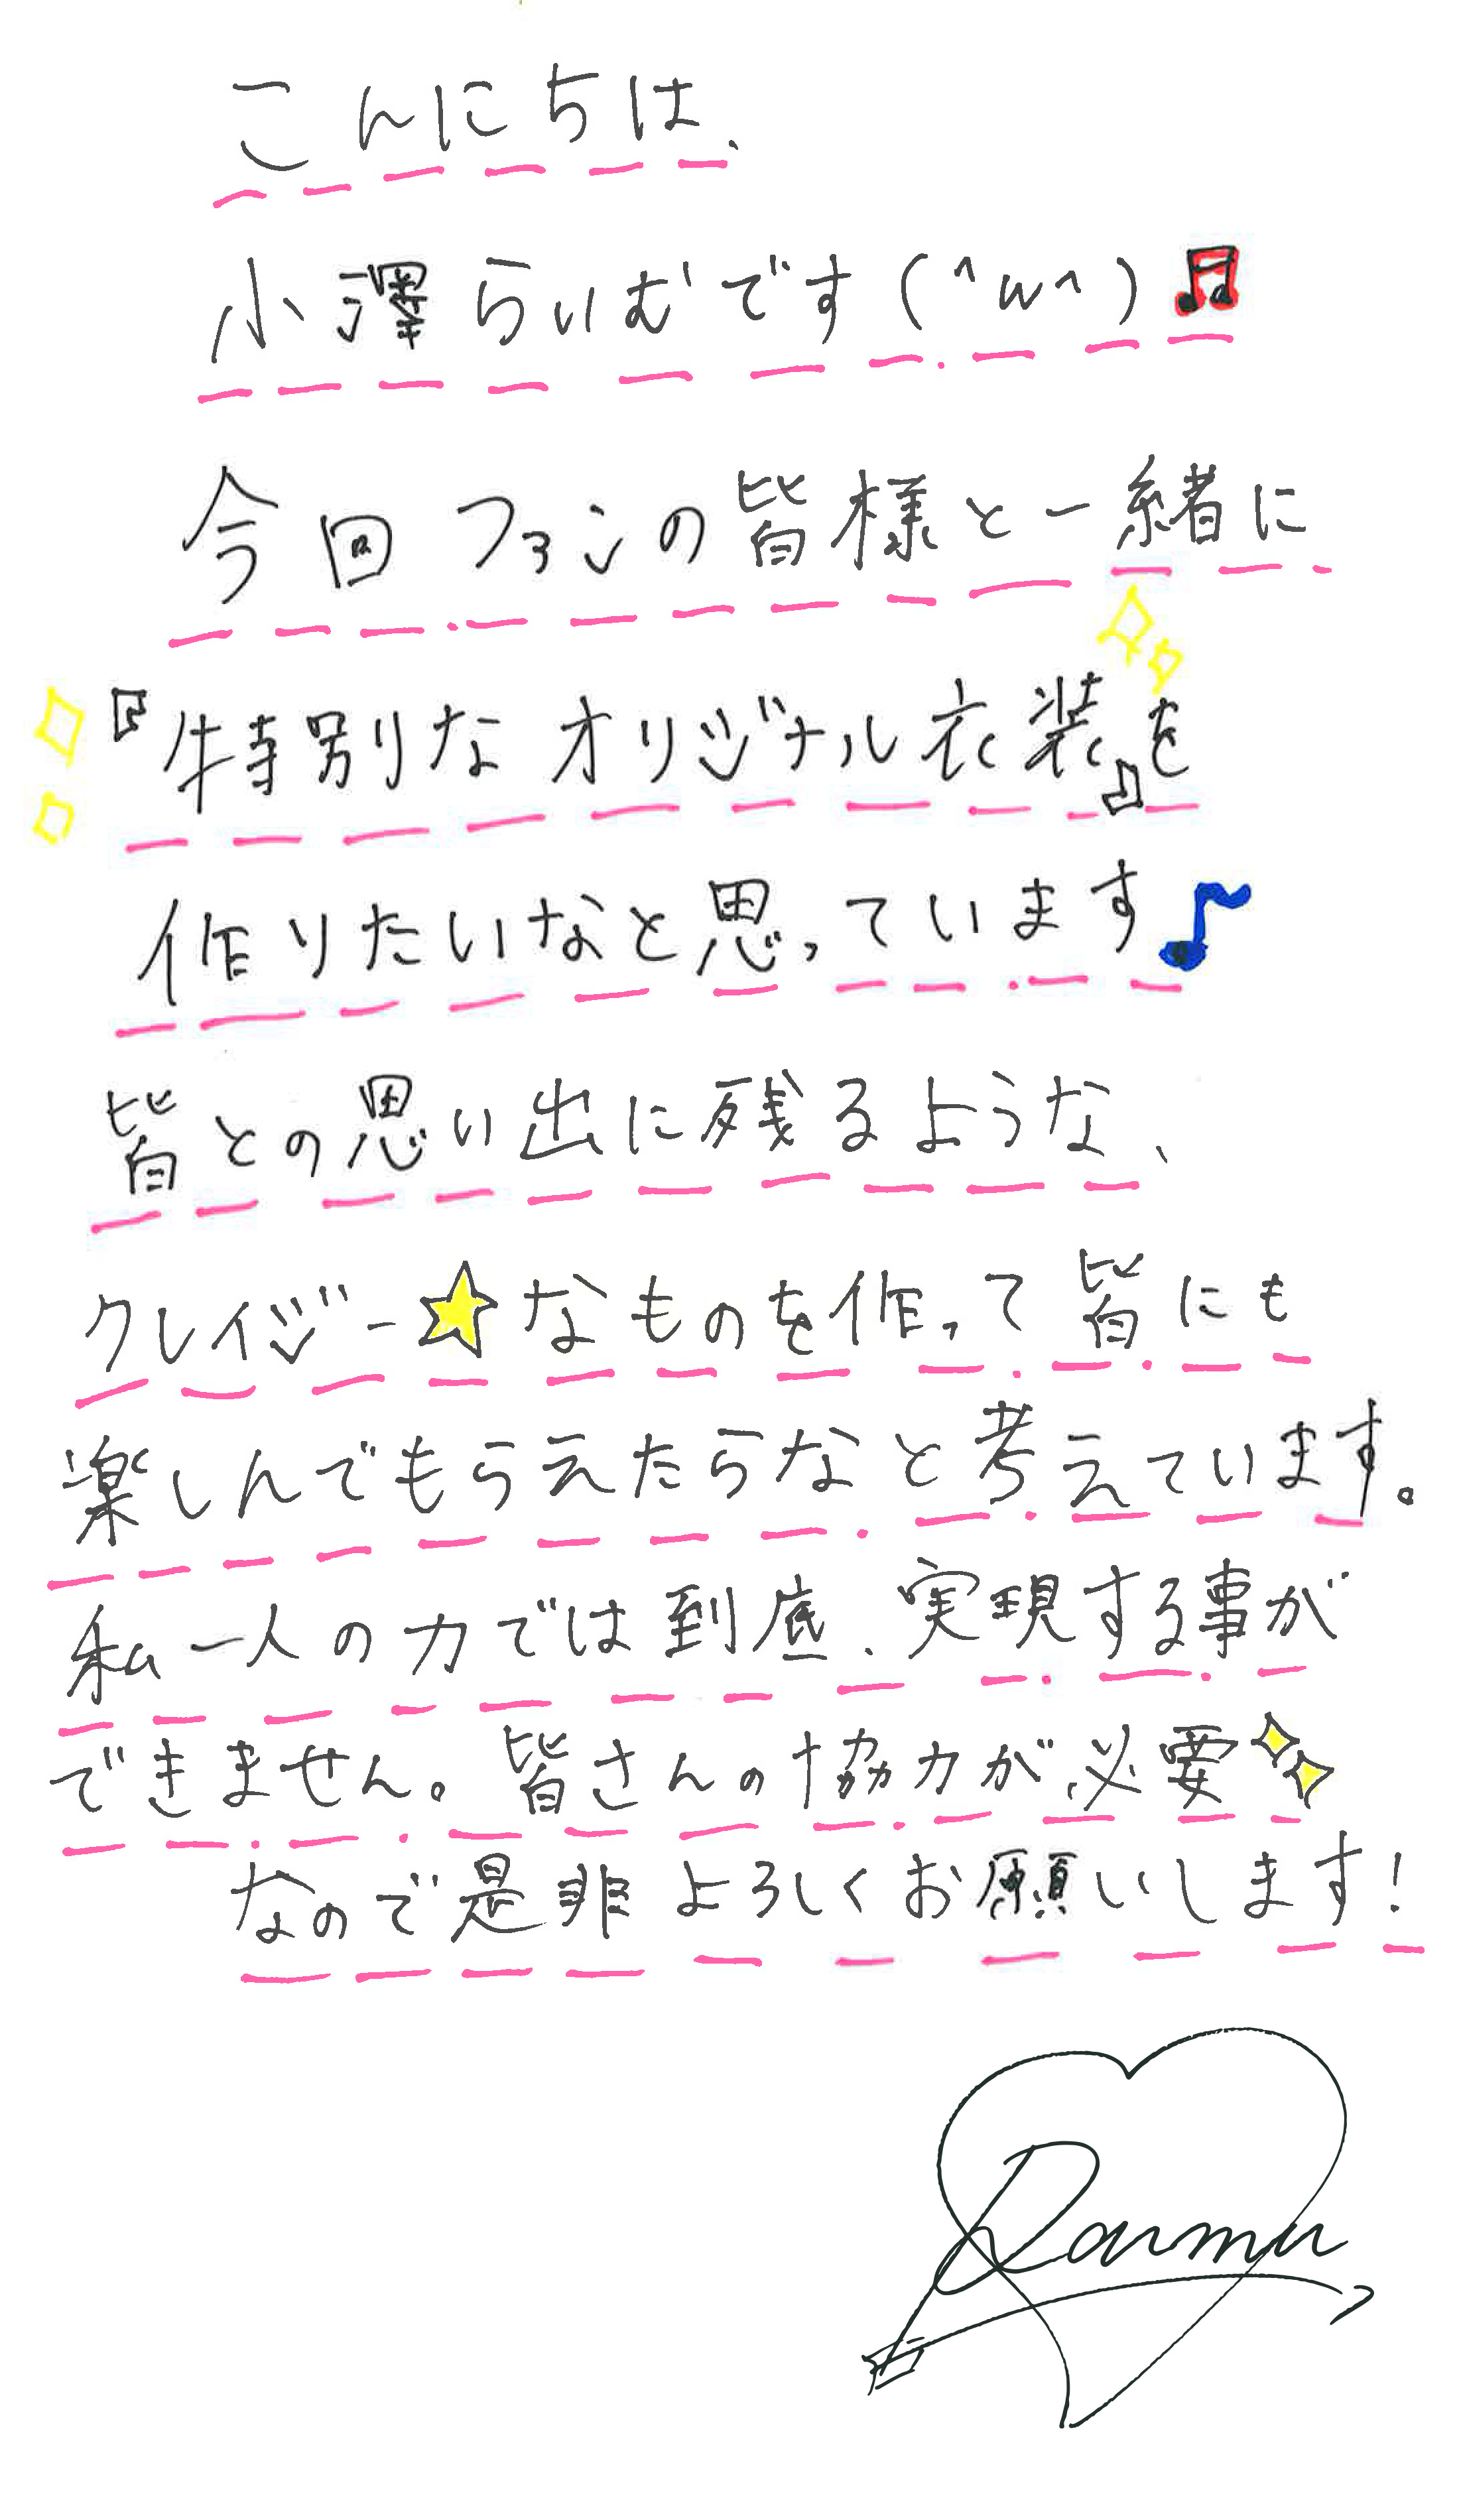 こんにちは、
小澤らいむです(^w^)♬
今回ファンの皆様と一緒に
『特別なオリジナル衣装』を
作りたいなと思っています♪
皆との思い出に残るような、
クレイジー☆なものを作って皆にも
楽しんでもらえたらなと考えています。
私一人の力では到底、実現する事が
できません。皆さんの協力が必要
なので是非よろしくお願いします!